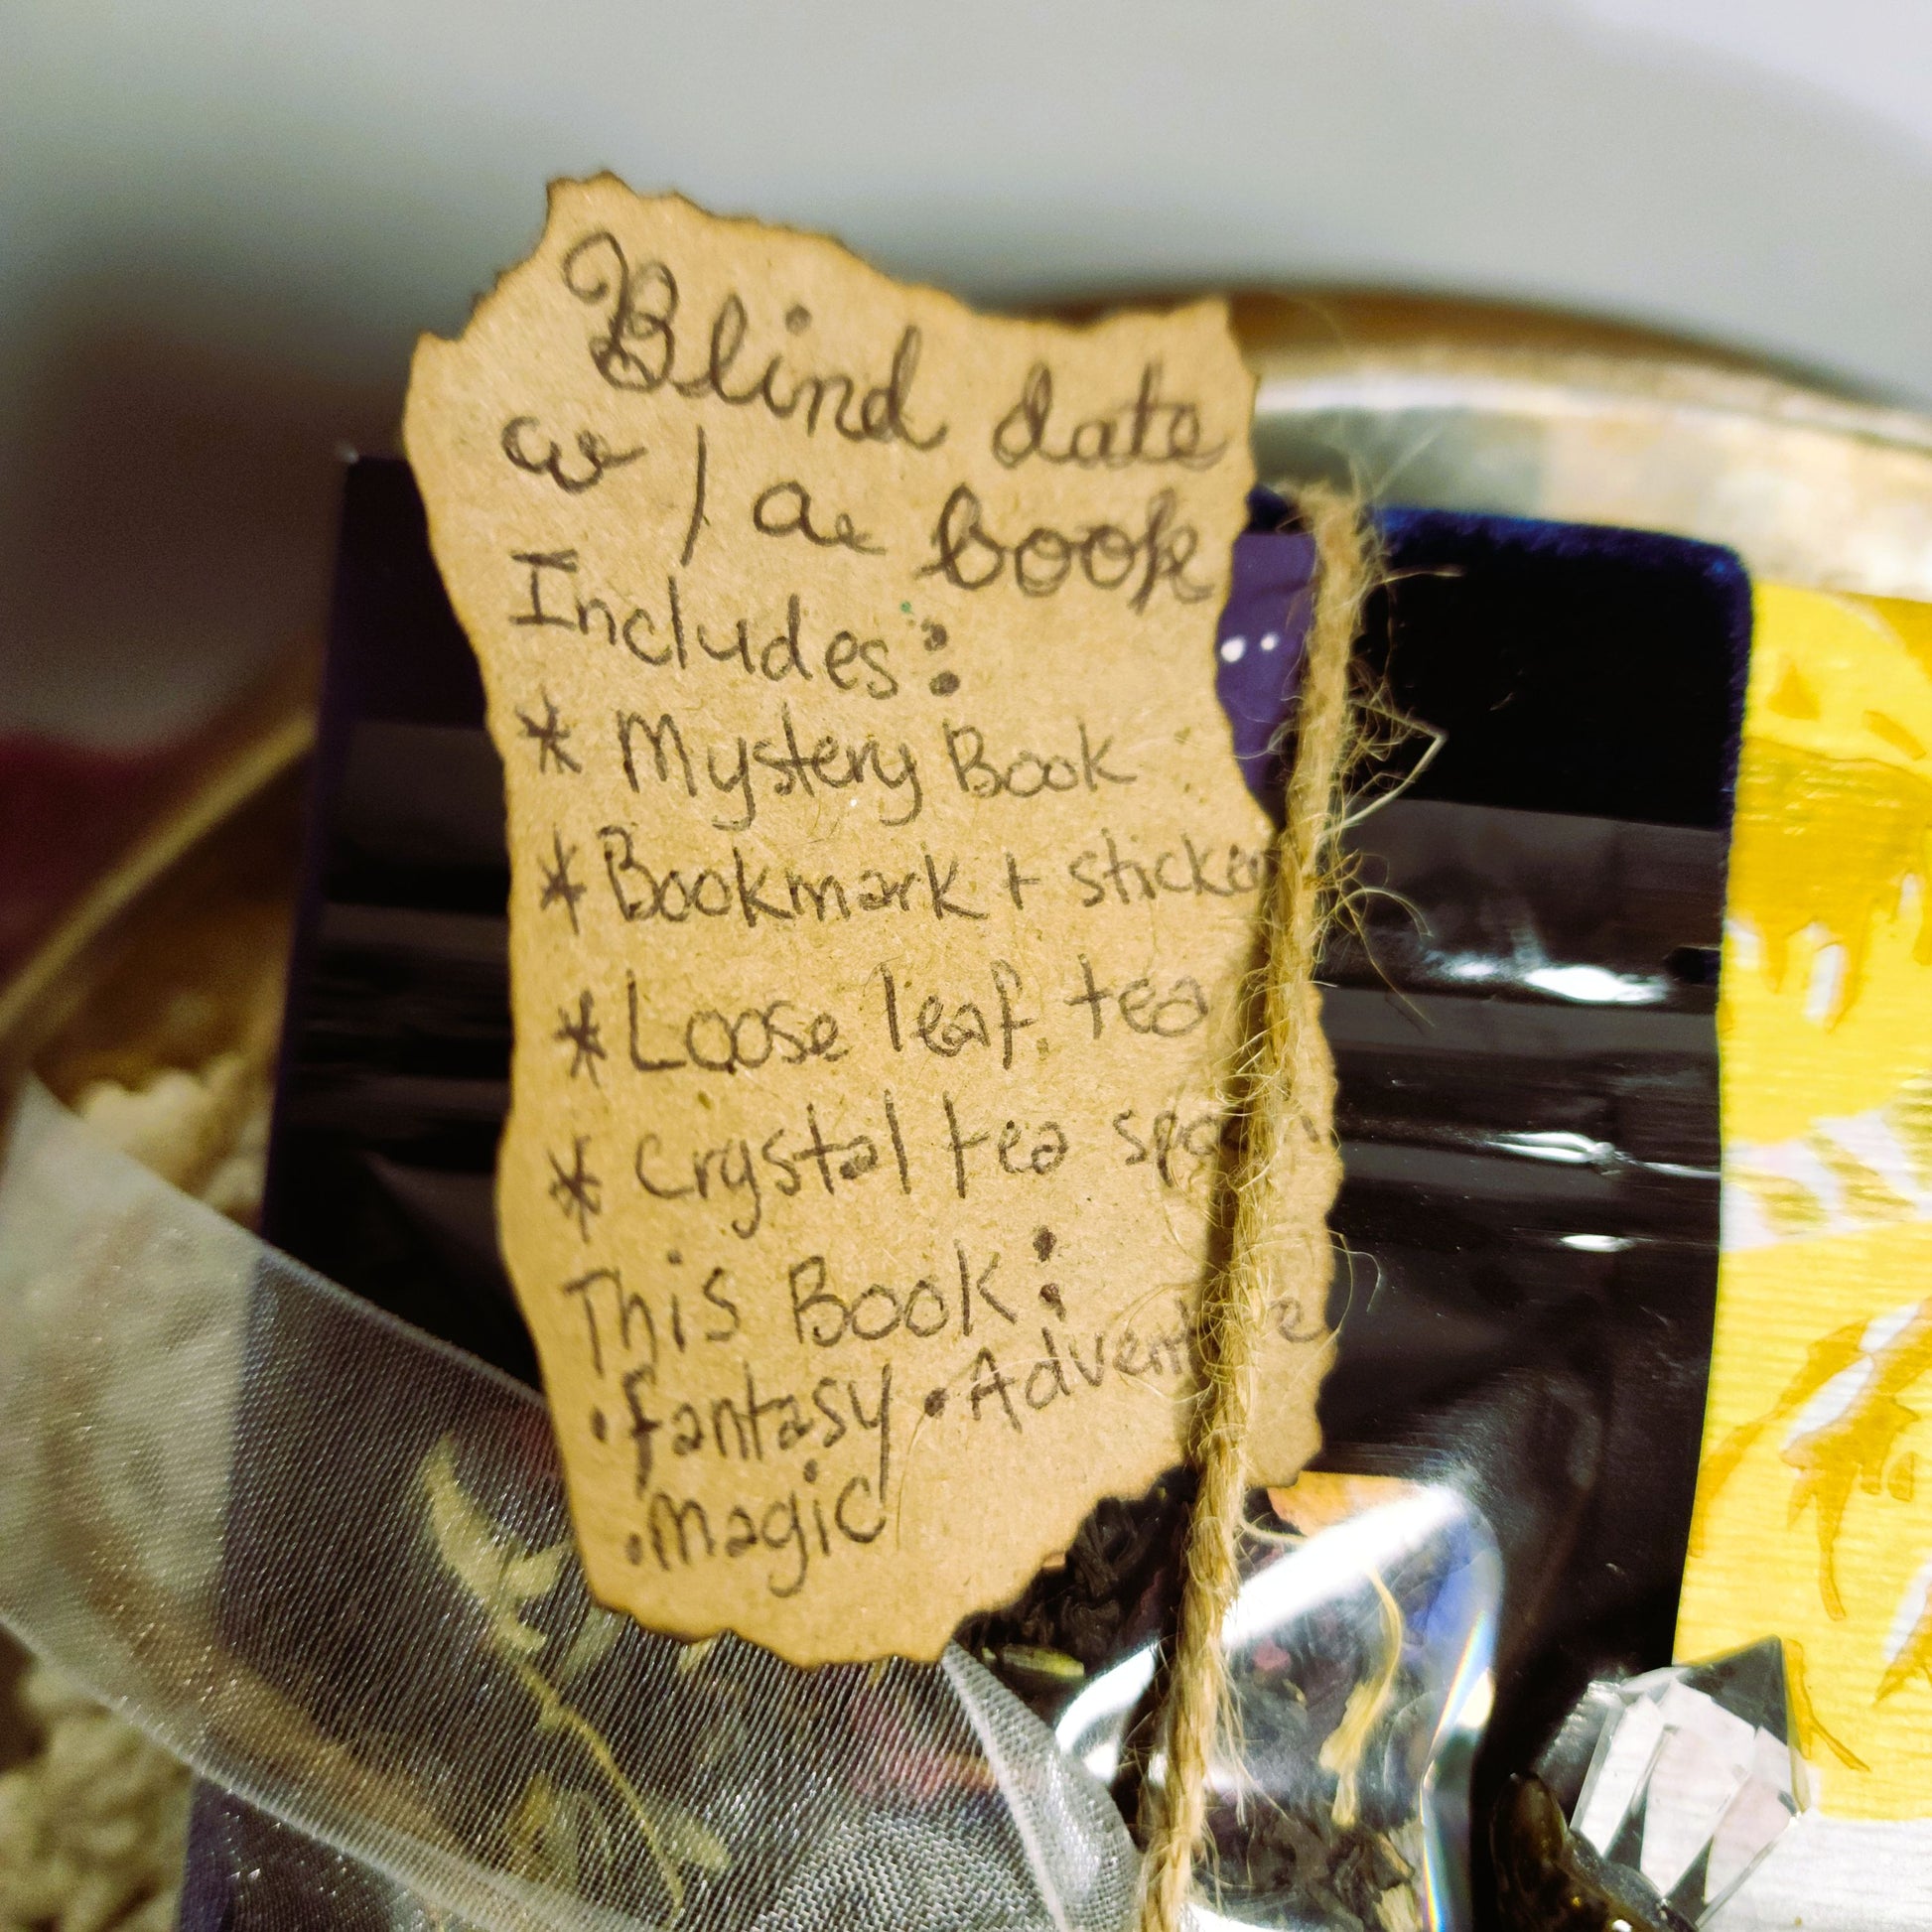 Blind date
w/ a book
Includes:
* Mystery Book
* Bookmark + sticker
* Loose leaf tea
* Crystal tea spoon
This Book:
• Fantasy • Adventure
• Magic